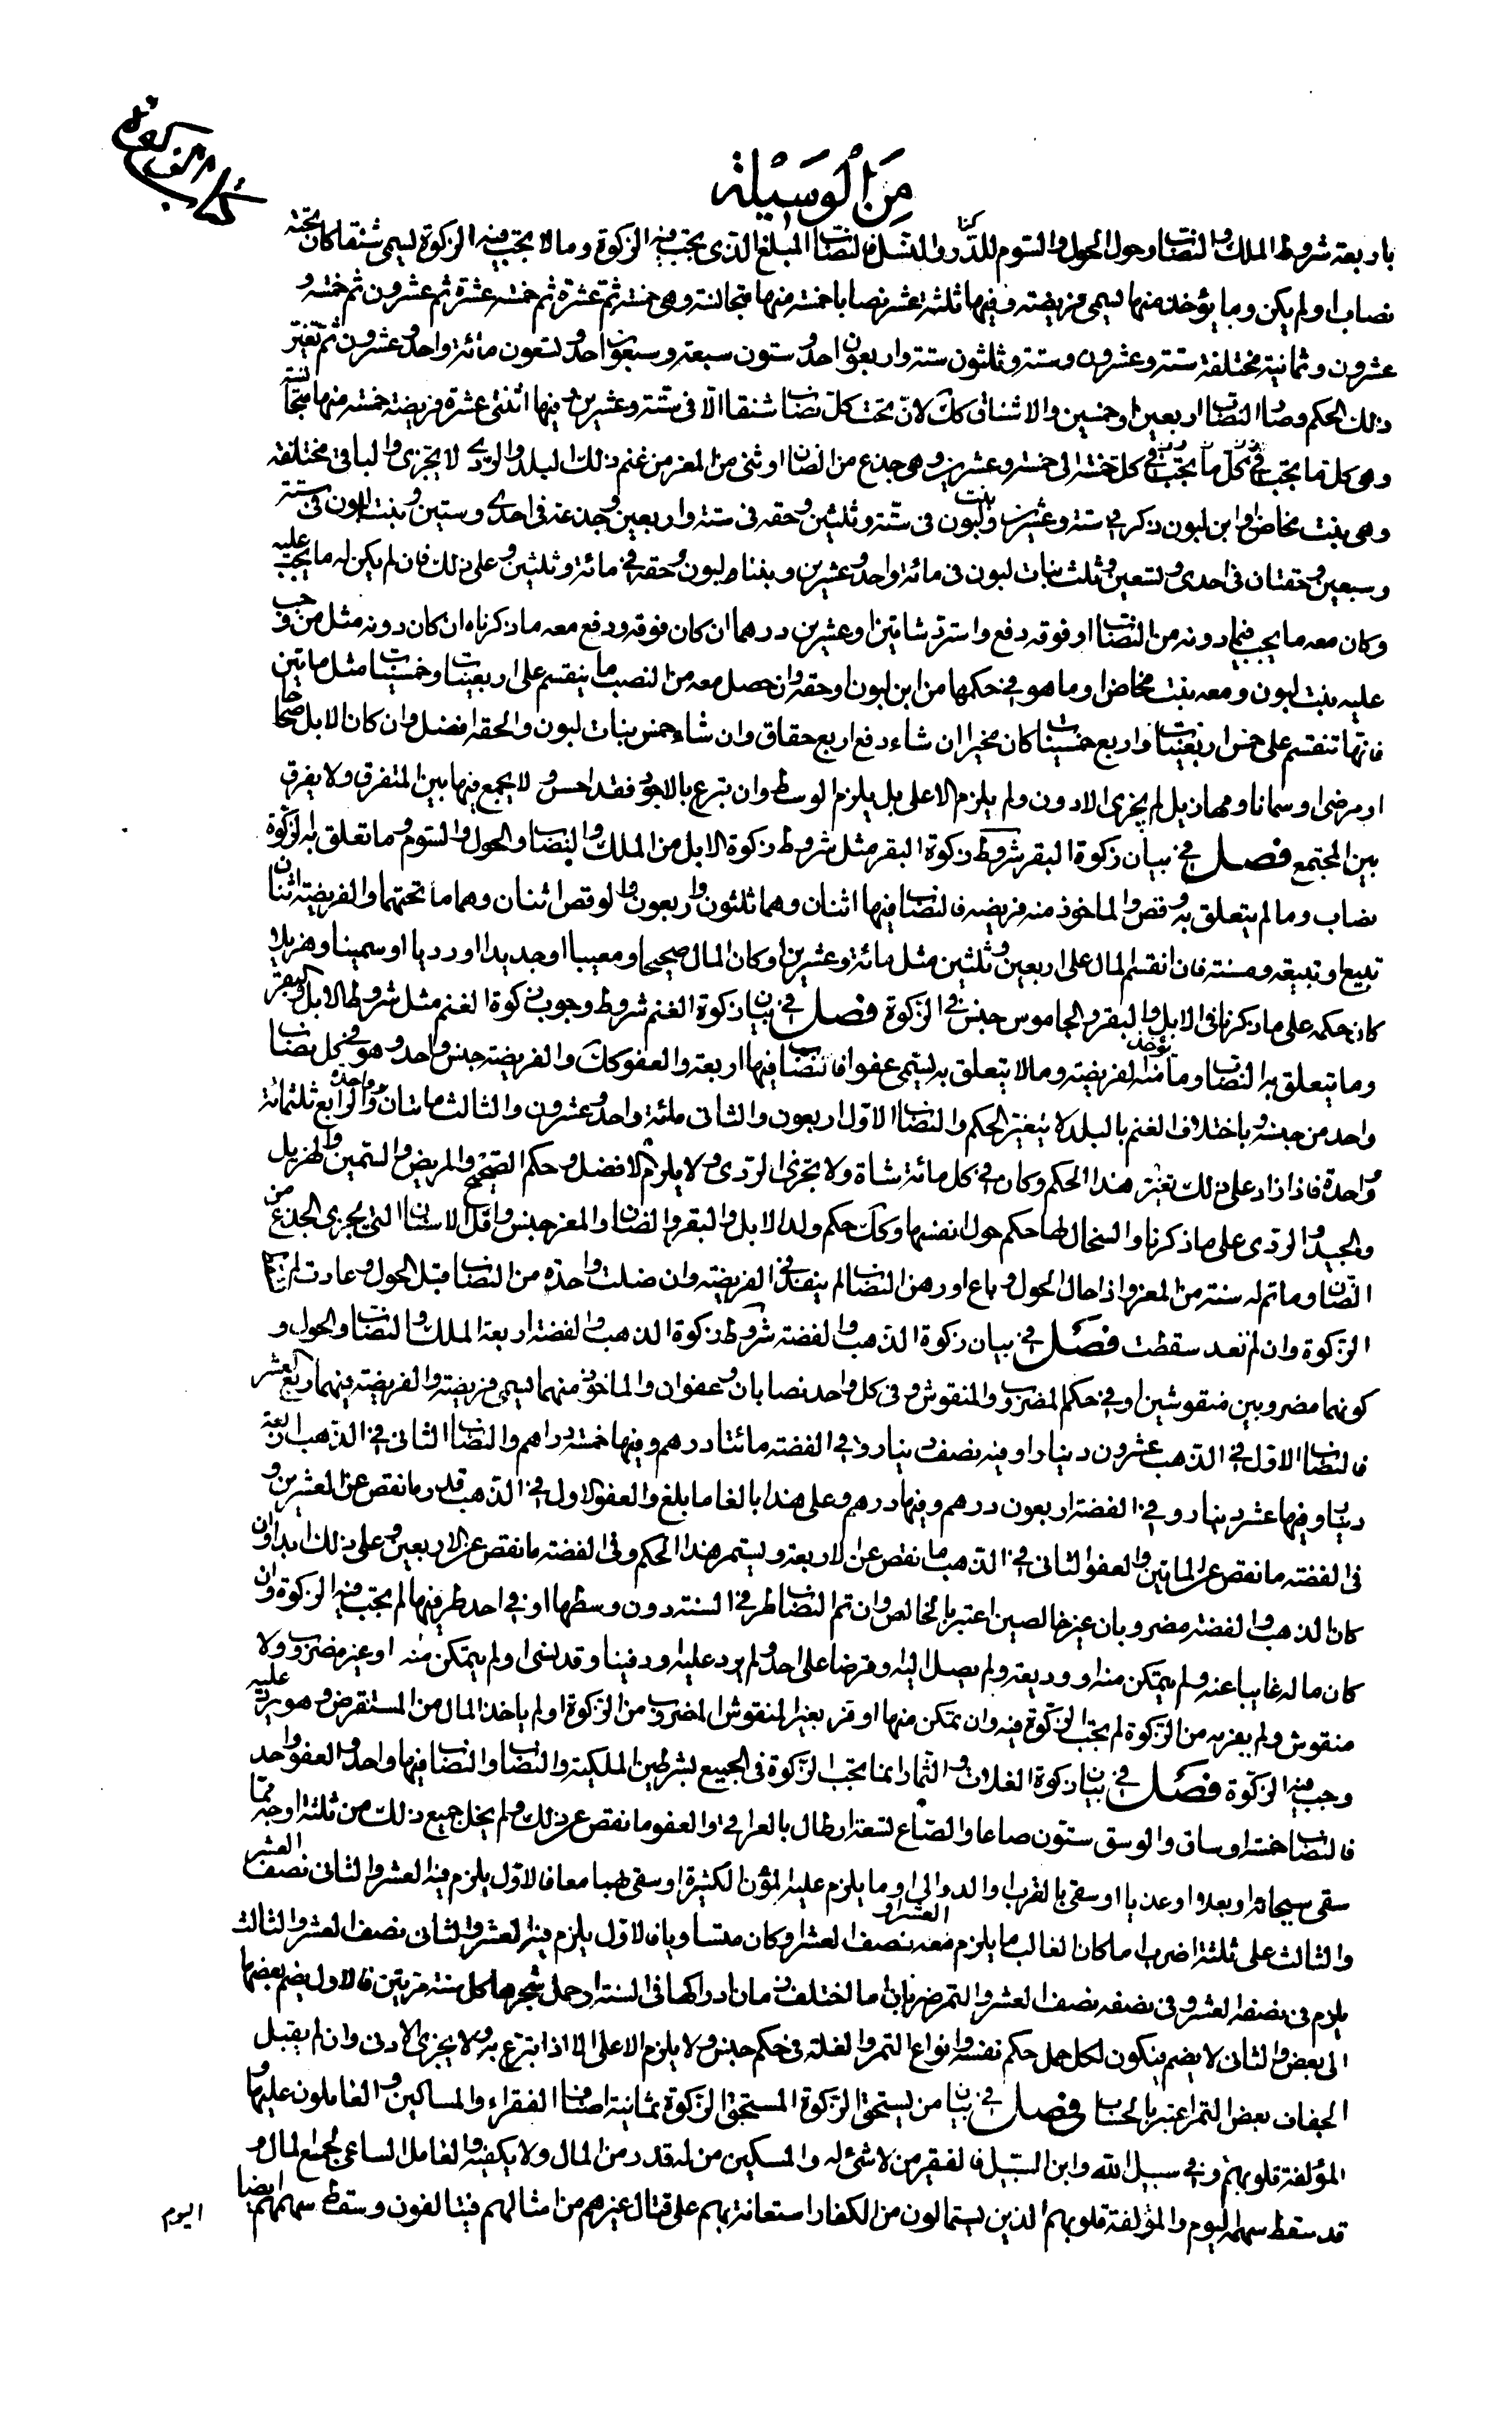 كتاب الزكوة
من الوسيلة
باربعة شروط الملك والنصاب وحول الحول والسوم للدر والنسل فالنصاب المبلغ الذى يجب فيه الزكوة وما لا يجب فيه الزكوة يسمى شنقا كان تحته
نصاب او لم يكن وما يؤخذ منها يسمى فريضة وفيها ثلثة عشر نصابا خمسة منها متجانسة وهى خمسة ثم عشرة ثم خمسة عشرة ثم عشرون ثم خمسة و
عشرون وثمانية مختلفة ستة وعشرون وستة وثلثون ستة واربعون احد وستون ستة وسبعون احد وتسعون مائة واحد وعشرون ثم تغير
ذلك الحكم وصار النصاب اربعين او خمسين والاشناق كك لان تحت كل نصاب شنقا الا فى ستة وعشرين وفيها اثنتى عشرة فريضة خمسة منها متجانسة
وهى كلما يجب فى كل خمسة الى خمسة وعشرين وهى جذع من الضان او ثنى من المعز من غنم ذلك البلد والردى لا يجزى والباقى مختلفة
وهى بنت مخاض او ابن لبون ذكر فى ستة وعشرين وبنت لبون فى ستة وثلثين وحقة فى ستة واربعين وجذعة فى احدى وستين وبنتا لبون فى ستة
وسبعين وحقتان فى احدى وتسعين وثلث بنات لبون فى مائة واحد وعشرين وبنتا لبون وحقة فى مائة وثلثين وعلى ذلك فان لم يكن له ما يجب عليه
وكان معه ما يجب فيما دونه من النصاب او فوقه دفع واسترد شاتين او عشرين درهما ان كان فوقه ودفع معه ما ذكرناه ان كان دونه مثل من وجب
عليه بنت لبون ومعه بنت مخاض او ما هو فى حكمها من ابن لبون او حقة وان حصل معه من النصب ما ينقسم على اربعينات وخمسينات مثل مائتين
فانها تنقسم على خمس اربعينات واربع خمسينات كان مخيرا ان شاء دفع اربع حقاق وان شاء خمس بنات لبون والحقة افضل وان كان الابل صحاحا
او مرضى او سمانا ومهازيل لم يجزى الادون ولم يلزم الاعلى بل يلزم الوسط وان تبرع بالاجود فقد احسن ولا يجمع فيها بين المتفرق ولا يفرق
بين المجتمع فصل فى بيان زكوة البقر شروط زكوة البقر مثل شروط زكوة الابل من الملك والنصاب والحول والسوم وما تعلق به الزكوة
نصاب وما لم يتعلق به وقص والماخوذ منه فريضة فالنصاب فيها اثنان وهما ثلثون واربعون والوقص اثنان وهما ما تحتهما والفريضة اثنتان
تبيع او تبيعة ومسنة فان انقسم المال على اربعين وثلثين مثل مائة وعشرين او كان المال صحيحا ومعيبا او جديدا او رديا او سمينا وهزيلا
كان حكمه على ما ذكرنا فى الابل والبقر والجاموس جنس فى الزكوة فصل فى بيان زكوة الغنم شروط وجوب زكوة الغنم مثل شروط الابل والبقر
وما يتعلق به النصاب وما يؤخذ منه الفريضة وما لا يتعلق به يسمى عفوا فالنصاب فيها اربعة والعفو كك والفريضة جنس واحد وهو فى كل نصاب
واحد من جنسه وباختلاف الغنم بالبلد لا يتغير الحكم والنصاب الاول اربعون والثانى مائة واحد وعشرون والثالث مائتان وواحدة والرابع ثلثمائة
وواحدة فاذا زاد على ذلك تغير هذا الحكم وكان فى كل مائة شاة ولا يجزى الردى ولا يلزم الافضل وحكم الصحيح والمريض والسمين والهزيل
والجيد والردى على ما ذكرنا والسخال لها حكم حول انفسها وكك حكم ولد الابل والبقر والضان والمعز جنس واقل الاسنان التى يجزى الجذع من
الضان وما تم له سنة من المعز واذا حال الحول وباع او رهن النصاب لم ينفذ فى الفريضة وان ضلت واحدة من النصاب قبل الحول وعادت لم
الزكوة وان لم تعد سقطت فصل فى بيان زكوة الذهب والفضة شروط زكوة الذهب والفضة اربعة الملك والنصاب والحول و
كونهما مضروبين منقوشين او فى حكم المضروب والمنقوش وفى كل واحد نصابان وعفوان والماخوذ منهما يسمى فريضة والفريضة فيهما ربع عشر
فالنصاب الاول فى الذهب عشرون دينارا وفيه نصف دينار وفى الفضة مائتا درهم وفيها خمسة دراهم والنصاب الثانى فى الذهب اربعة
دنانير وفيها عشر دينار وفى الفضة اربعون درهم وفيها درهم وعلى هذا بالغا ما بلغ والعفو الاول فى الذهب قدر ما نقص عن العشرين و
فى الفضة ما نقص عن المائتين والعفو الثانى فى الذهب ما نقص عن الاربعة ويستمر هذا الحكم وفى الفضة ما نقص عن الاربعين وعلى ذلك ابدا وان
كان الذهب والفضة مضروبان غير خالصين اعتبر بالخالص وان تم النصاب طرفى السنة دون وسطها او فى احد طرفيها لم يجب فيه الزكوة وان
كان ماله غايبا عنه ولم يتمكن منه او وديعة ولم يصل اليه وقرضا على احد ولم يرد عليه او دفينا وقد نسى او لم يتمكن منه او غير مضروب ولا
منقوش ولم يفر به من الزكوة لم يجب الزكوة فيه وان تمكن منها او فر بغير المنقوش المضروب من الزكوة او لم ياخذ المال من المستقرض وهو يرد عليه
وجب فيه الزكوة فصل فى بيان زكوة الغلات والثمار انما يجب الزكوة فى الجميع بشرطين الملكية والنصاب والنصاب فيها واحد والعفو واحد
فالنصاب خمسة اوساق والوسق ستون صاعا والصاع تسعة ارطال بالعراقى والعفو ما نقص عن ذلك ولم يخل جميع ذلك من ثلثة اوجه مما
سقى سيحا او بعلا او عذيا او سقى بالقرب او الدوالى او ما يلزم عليه المؤن الكثيرة او سقى بهما معا فالاول يلزم فيه العشر والثانى نصف العشر
والثالث على ثلثة اضرب اما كان الغالب ما يلزم معه العشر او نصف العشر او كان متساويا فالاول يلزم فيه العشر والثانى نصف العشر والثالث
يلزم فى نصفه العشر وفى نصفه نصف العشر والتمر ضربان ما اختلف زمان ادراكها فى السنة او حمل شجرها كل سنة مرتين فالاول يضم بعضها
الى بعض والثانى لا يضم فيكون لكل حمل حكم نفسه وانواع التمر والغلة فى حكم جنس ولا يلزم الاعلى الا اذا تبرع به ولا يجزى الادنى وان لم يقبل
الجفاف بعض التمر اعتبر بالحساب فصل فى بيان من يستحق الزكوة المستحق الزكوة ثمانية اصناف الفقراء والمساكين والعاملون عليها و
المؤلفة قلوبهم وفى سبيل الله وابن السبيل فالفقير من لا شئ له والمسكين من له قدر من المال ولا يكفيه والعامل الساعى لجمع المال و
قد سقط سهمه اليوم والمؤلفة قلوبهم الذين يستمالون من الكفار استعانة بهم على قتال غيرهم من امثالهم فيتالفون وسقط سهمهم ايضا
اليوم